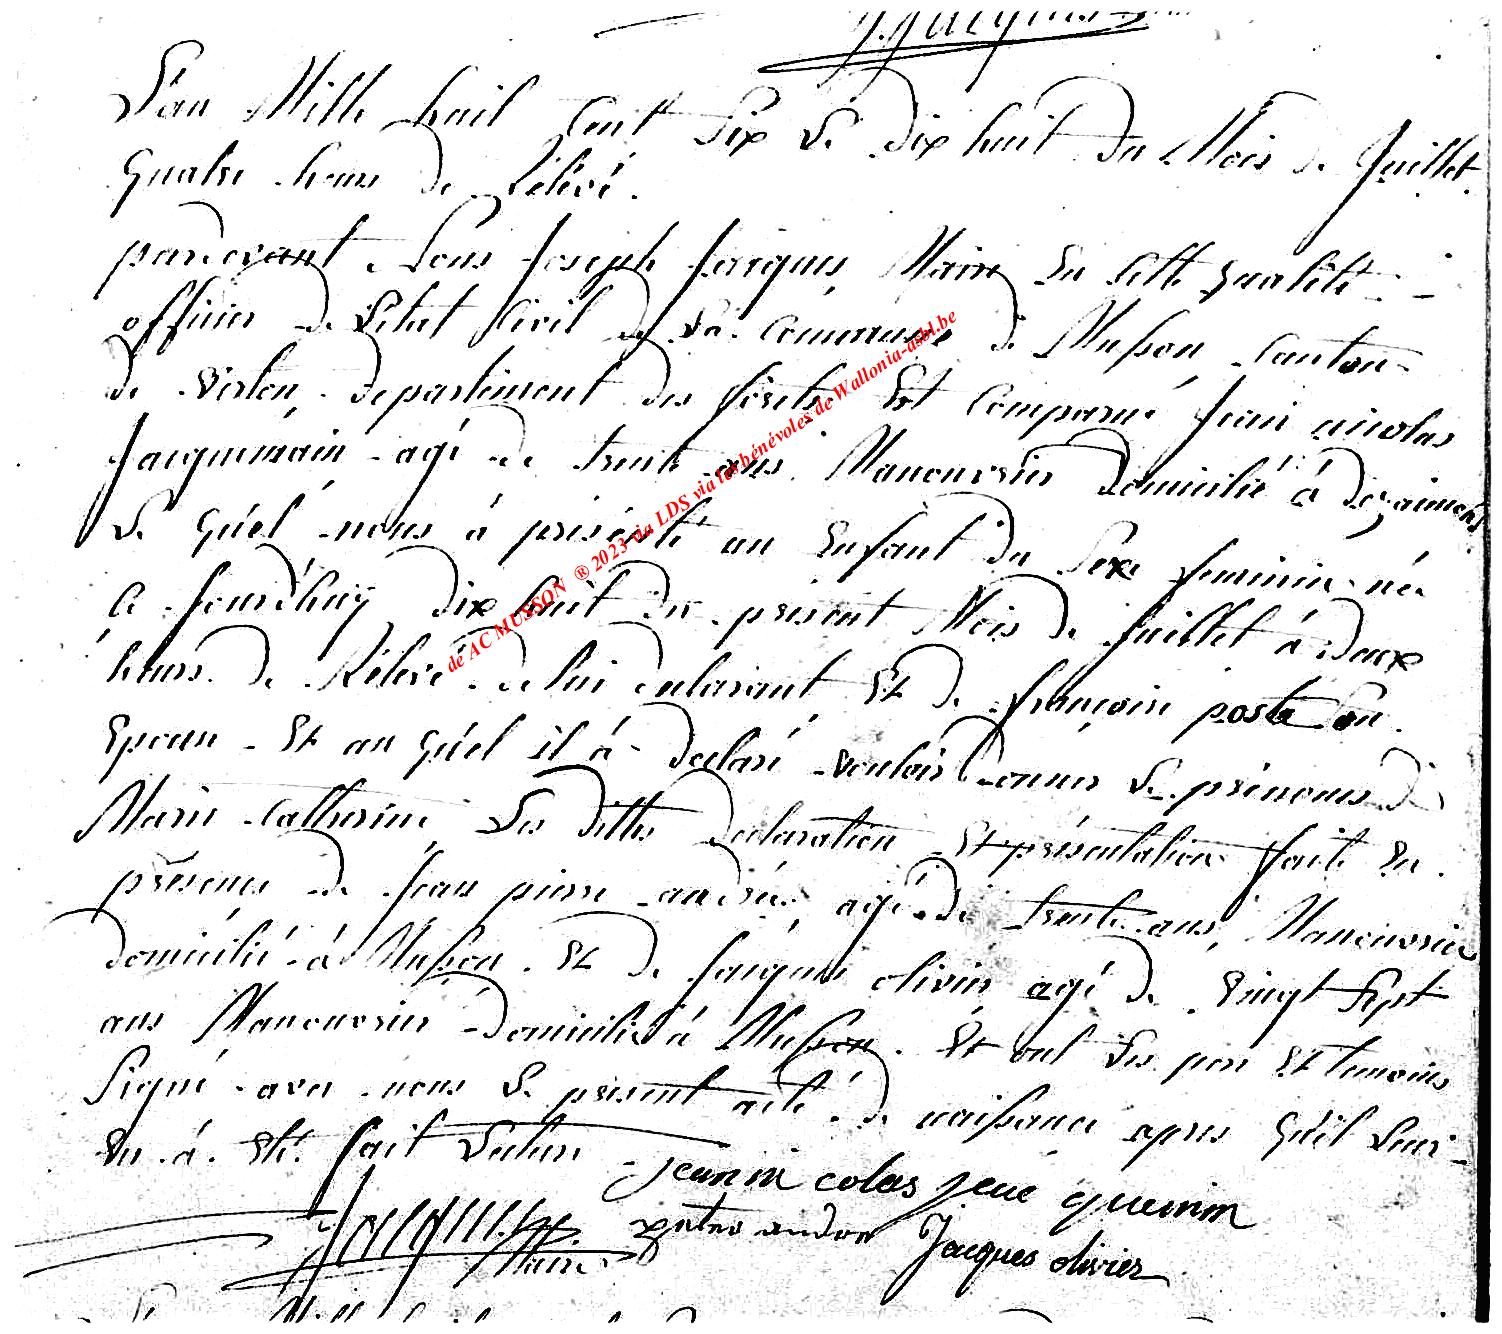 L'an Mille huit Cent Six Le dix huit du Mois de Juillet
Quatre heures de Rélévé.
pardevant Nous Joseph Jacques, Maire En Cette qualité
officier de L'état Civil de La Commune de Musson Canton
de Virton departement des forêts Est Comparue Jean nicolas
Jacquemain agé de trente ans Manouvrier domicilié à
Le Quel nous à présenté un Enfant du Sexe feminin née
Ce Jourdhuy dix huit du présent Mois de Juillet à deux
heures de Rélévé de lui declarant Et de françoise poste Son
Epouse Et au Quel il à déclaré vouloir donner Le prénoms de
Marie Catherine Les dittes declaration Et présentation faite En
présence de Jean pierre andré agé de trente ans, Manouvrier
domicilié à Musson Et de Jacques olivier agé de vingt Sept
ans Manouvrier domicilié à Musson. Et ont Les pere Et temoins
Signé avec nous Le présent acte de naissance apres Qu'il Leur
En à été fait Lecture jean ni colas jeue quemin
Jacques Maire peter andre Jacques olivier
de AC MUSSON ® 2023 via LDS via les bénévoles de Wallonia-asbl.be